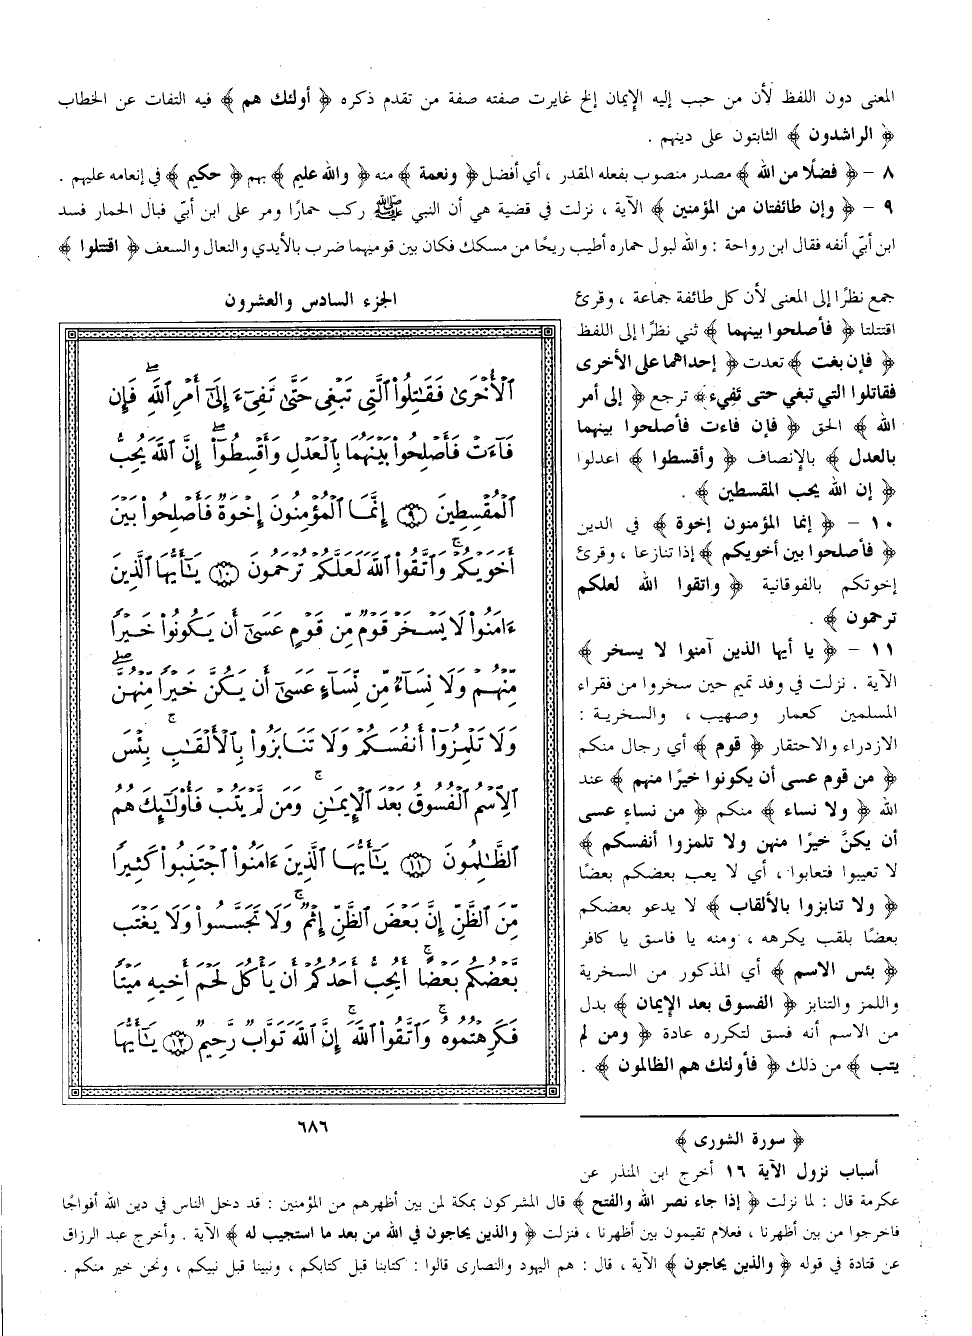 المعنى دون اللفظ لأن من حبب إليه الإيمان إلخ غايرت صفته صفة من تقدم ذكره ﴿ أولئك هم ﴾ فيه التفات عن الخطاب
﴿ الراشدون ﴾ الثابتون على دينهم .
٨ – ﴿ فضلًا من الله ﴾ مصدر منصوب بفعله المقدر ، أي أفضل ﴿ ونعمة ﴾ منه ﴿ والله عليم ﴾ بهم ﴿ حكيم ﴾ في إنعامه عليهم .
٩ – ﴿ وإن طائفتان من المؤمنين ﴾ الآية ، نزلت في قضية هي أن النبي ﷺ ركب حمارًا ومر على ابن أبيّ فبال الحمار فسد
ابن أبيّ أنفه فقال ابن رواحة : والله لبول حماره أطيب ريحًا من مسكك فكان بين قوميهما ضرب بالأيدي والنعال والسعف ﴿ اقتتلوا ﴾
جمع نظرًا إلى المعنى لأن كل طائفة جماعة ، وقرئ
اقتتلتا ﴿ فأصلحوا بينهما ﴾ ثني نظرًا إلى اللفظ
﴿ فإن بغت ﴾ تعدت ﴿ إحداهما على الأخرى
فقاتلوا التي تبغي حتى تفيء ﴾ ترجع ﴿ إلى أمر
الله ﴾ الحق ﴿ فإن فاءت فأصلحوا بينهما
بالعدل ﴾ بالإنصاف ﴿ وأقسطوا ﴾ اعدلوا
﴿ إن الله يحب المقسطين ﴾ .
١٠ – ﴿ إنما المؤمنون إخوة ﴾ في الدين
﴿ فأصلحوا بين أخويكم ﴾ إذا تنازعا ، وقرئ
إخوتكم بالفوقانية ﴿ واتقوا الله لعلكم
ترحمون ﴾ .
١١ – ﴿ يا أيها الذين آمنوا لا يسخر ﴾
الآية . نزلت في وفد تميم حين سخروا من فقراء
المسلمين كعمار وصهيب ، والسخرية :
الازدراء والاحتقار ﴿ قوم ﴾ أي رجال منكم
﴿ من قوم عسى أن يكونوا خيرًا منهم ﴾ عند
الله ﴿ ولا نساء ﴾ منكم ﴿ من نساءٍ عسى
أن يكنَّ خيرًا منهن ولا تلمزوا أنفسكم ﴾
لا تعيبوا فتعابوا ، أي لا يعب بعضكم بعضًا
﴿ ولا تنابزوا بالألقاب ﴾ لا يدعو بعضكم
بعضًا بلقب يكرهه ، ومنه يا فاسق يا كافر
﴿ بئس الاسم ﴾ أي المذكور من السخرية
واللمز والتنابز ﴿ الفسوق بعد الإيمان ﴾ بدل
من الاسم أنه فسق لتكرره عادة ﴿ ومن لم
يتب ﴾ من ذلك ﴿ فأولئك هم الظالمون ﴾ .
الجزء السادس والعشرون
ٱلْأُخْرَىٰ فَقَٰتِلُوا۟ ٱلَّتِى تَبْغِى حَتَّىٰ تَفِىٓءَ إِلَىٰٓ أَمْرِ ٱللَّهِ ۚ فَإِن
فَآءَتْ فَأَصْلِحُوا۟ بَيْنَهُمَا بِٱلْعَدْلِ وَأَقْسِطُوٓا۟ ۖ إِنَّ ٱللَّهَ يُحِبُّ
ٱلْمُقْسِطِينَ ۝٩ إِنَّمَا ٱلْمُؤْمِنُونَ إِخْوَةٌ فَأَصْلِحُوا۟ بَيْنَ
أَخَوَيْكُمْ ۚ وَٱتَّقُوا۟ ٱللَّهَ لَعَلَّكُمْ تُرْحَمُونَ ۝١٠ يَٰٓأَيُّهَا ٱلَّذِينَ
ءَامَنُوا۟ لَا يَسْخَرْ قَوْمٌ مِّن قَوْمٍ عَسَىٰٓ أَن يَكُونُوا۟ خَيْرًا
مِّنْهُمْ وَلَا نِسَآءٌ مِّن نِّسَآءٍ عَسَىٰٓ أَن يَكُنَّ خَيْرًا مِّنْهُنَّ ۖ
وَلَا تَلْمِزُوٓا۟ أَنفُسَكُمْ وَلَا تَنَابَزُوا۟ بِٱلْأَلْقَٰبِ ۚ بِئْسَ
ٱلِٱسْمُ ٱلْفُسُوقُ بَعْدَ ٱلْإِيمَٰنِ ۚ وَمَن لَّمْ يَتُبْ فَأُو۟لَٰٓئِكَ هُمُ
ٱلظَّٰلِمُونَ ۝١١ يَٰٓأَيُّهَا ٱلَّذِينَ ءَامَنُوا۟ ٱجْتَنِبُوا۟ كَثِيرًا
مِّنَ ٱلظَّنِّ إِنَّ بَعْضَ ٱلظَّنِّ إِثْمٌ ۚ وَلَا تَجَسَّسُوا۟ وَلَا يَغْتَب
بَّعْضُكُم بَعْضًا ۚ أَيُحِبُّ أَحَدُكُمْ أَن يَأْكُلَ لَحْمَ أَخِيهِ مَيْتًا
فَكَرِهْتُمُوهُ ۚ وَٱتَّقُوا۟ ٱللَّهَ ۚ إِنَّ ٱللَّهَ تَوَّابٌ رَّحِيمٌ ۝١٢ يَٰٓأَيُّهَا
٦٨٦
﴿ سورة الشورى ﴾
أسباب نزول الآية ١٦ أخرج ابن المنذر عن
عكرمة قال : لما نزلت ﴿ إذا جاء نصر الله والفتح ﴾ قال المشركون بمكة لمن بين أظهرهم من المؤمنين : قد دخل الناس في دين الله أفواجًا
فاخرجوا من بين أظهرنا ، فعلام تقيمون بين أظهرنا ، فنزلت ﴿ والذين يحاجون في الله من بعد ما استجيب له ﴾ الآية . وأخرج عبد الرزاق
عن قتادة في قوله ﴿ والذين يحاجون ﴾ الآية ، قال : هم اليهود والنصارى قالوا : كتابنا قبل كتابكم ، ونبينا قبل نبيكم ، ونحن خير منكم .